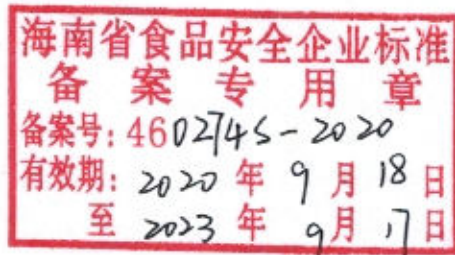 海南省食品安全企业标准
备案专用章
备案号：460274S-2020
有效期：2020年9月18日
至2023年9月17日